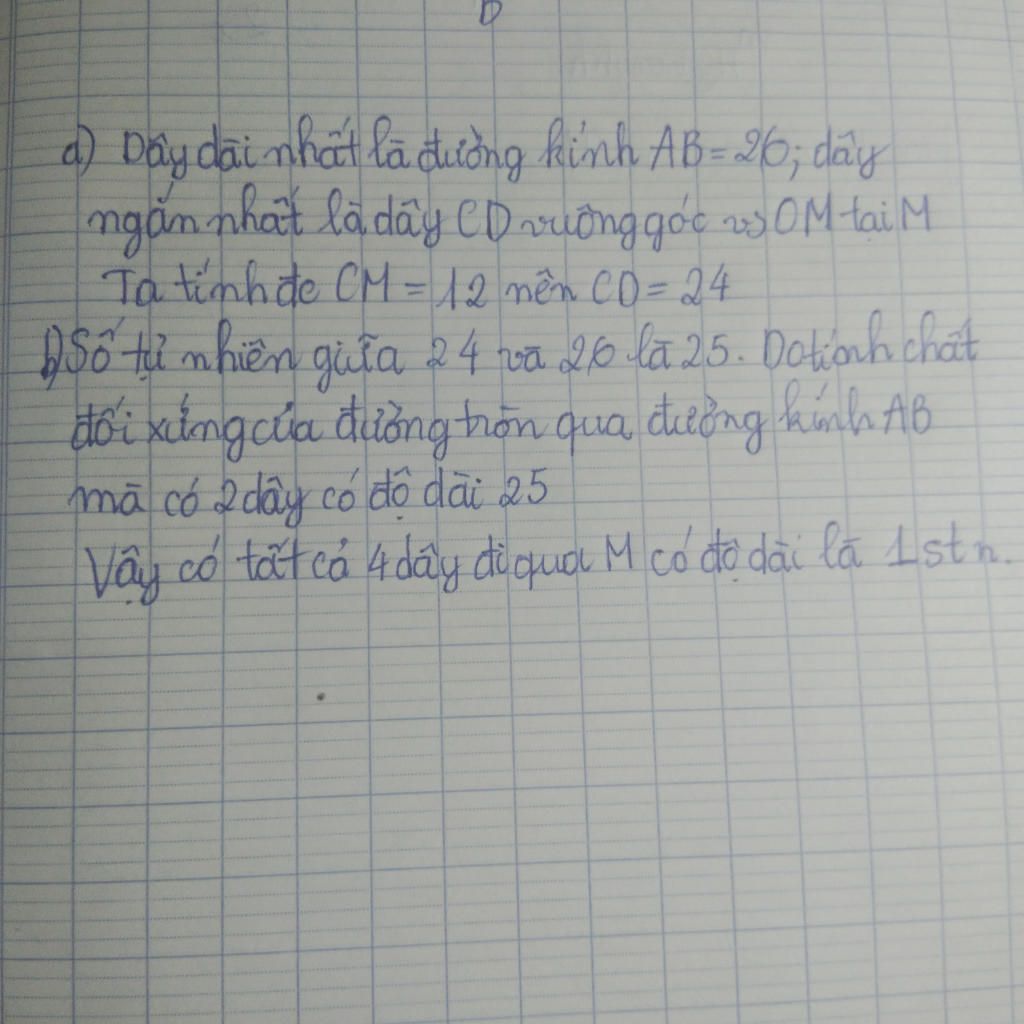 D
a) Dây dài nhất là đường kính AB = 26; dây
ngắn nhất là dây CD vuông góc vs OM tại M
Ta tính đc CM = 12 nên CD = 24
b) Số tự nhiên giữa 24 và 26 là 25. Do tính chất
đối xứng của đường tròn qua đường kính AB
mà có 2 dây có độ dài 25
Vậy có tất cả 4 dây đi qua M có độ dài là 1 stn.